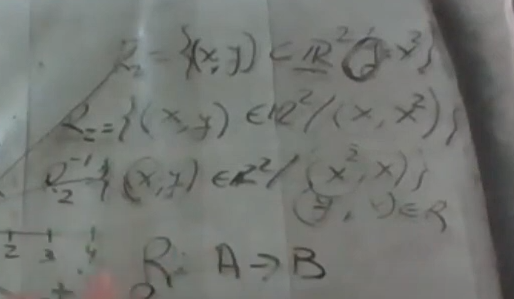 R₂ = {(x,y) ⊂ ℝ² / = x²}
R₂ = {(x,y) ∈ ℝ² / (x, x²)}
R₂⁻¹ {(x,y) ∈ ℝ² / (x², x)}
(y, ) ∈ R
2 3 4
R: A → B